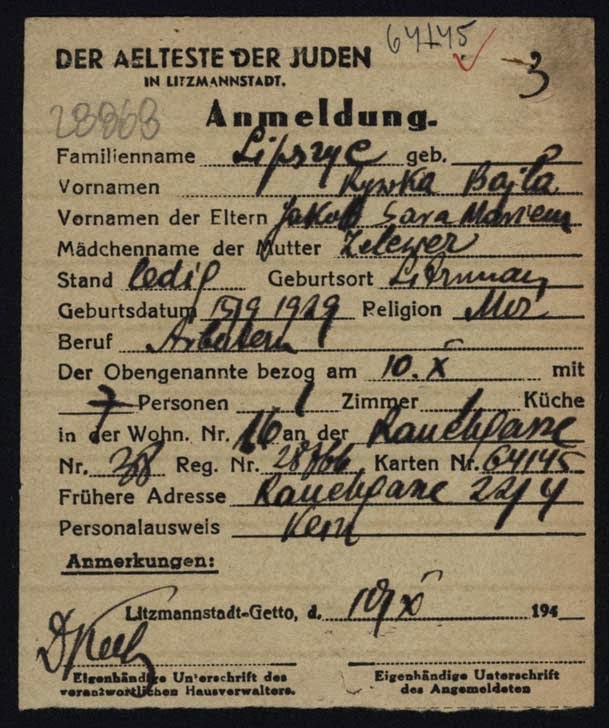 64145
3
DER AELTESTE DER JUDEN
IN LITZMANNSTADT.
28868
Anmeldung.
Familienname Lipszyc geb.
Vornamen Rywka Bajla
Vornamen der Eltern Jakob Sara Mariem
Mädchenname der Mutter Zelewer
Stand ledig Geburtsort Litzman
Geburtsdatum 15/9 1929 Religion Mos
Beruf Arbeiterin
Der Obengenannte bezog am 10. X mit
7 Personen 1 Zimmer 1 Küche
in der Wohn. Nr. 16 an der Rauchgasse
Nr. 38 Reg. Nr. Karten Nr. 64145
Frühere Adresse Rauchgasse 22/4
Personalausweis
Anmerkungen:
Litzmannstadt-Getto, d. X 194
Eigenhändige Unterschrift des
verantwortlichen Hausverwalters.
Eigenhändige Unterschrift
des Angemeldeten